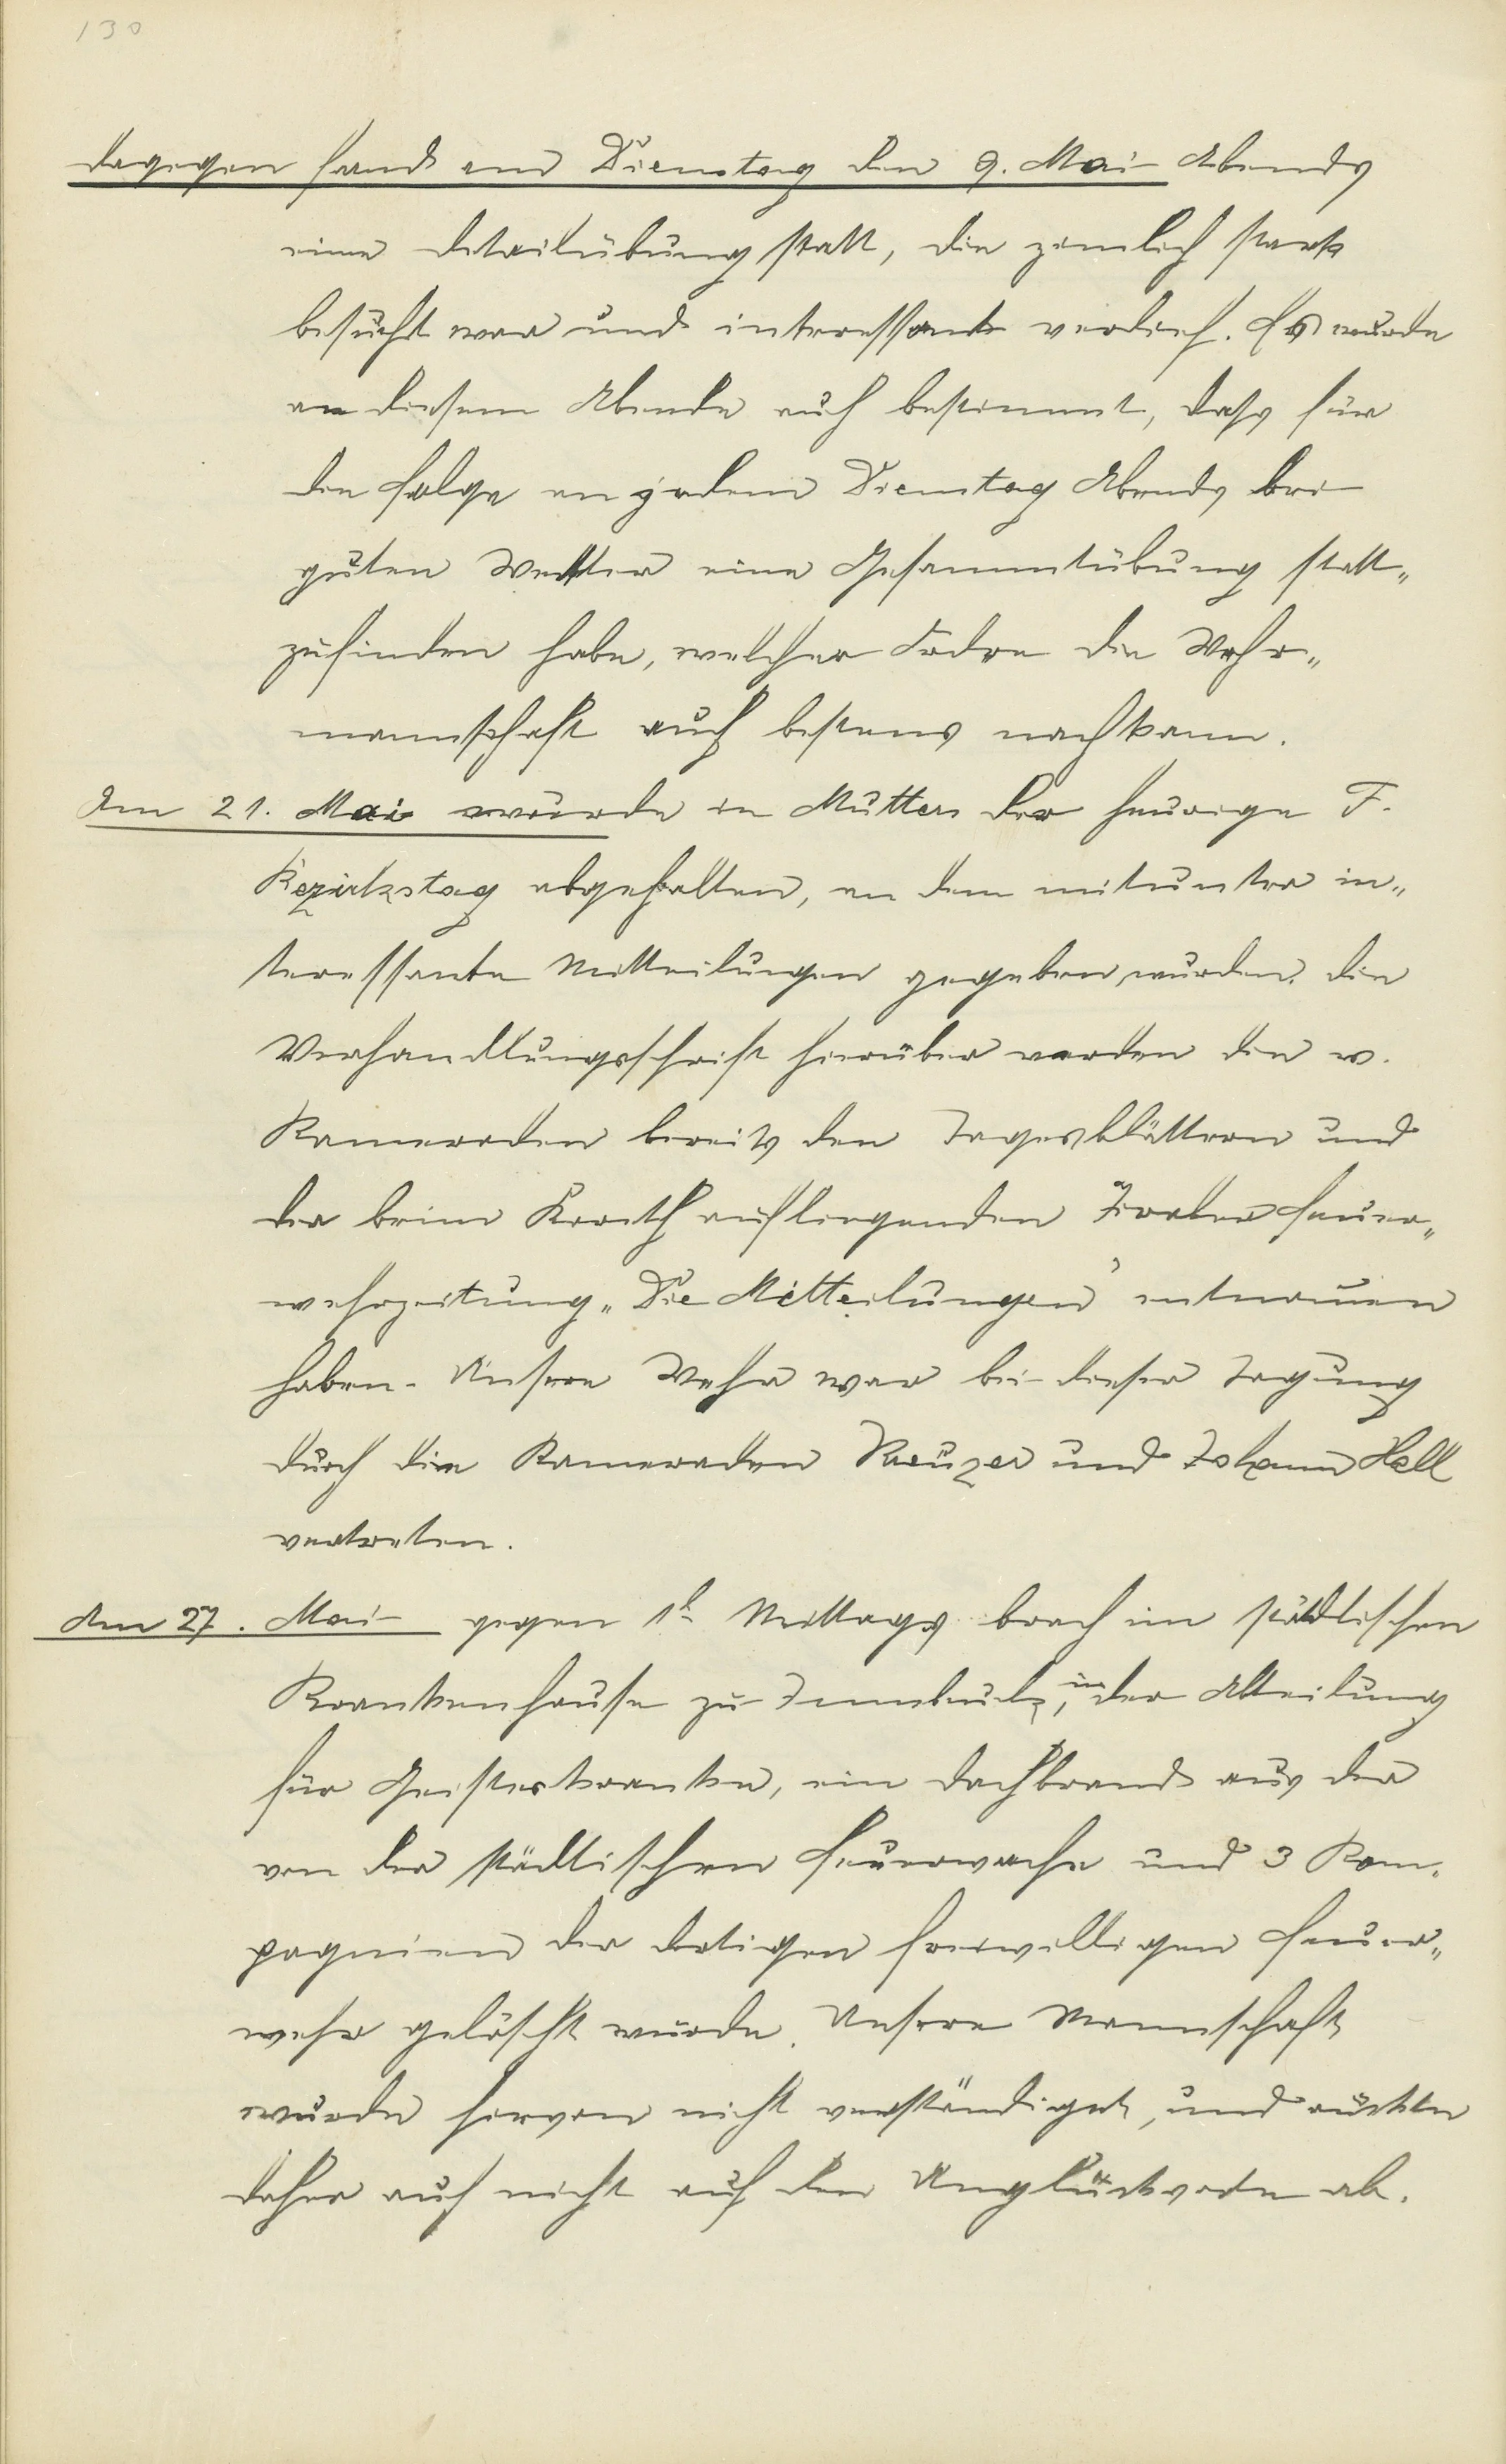 130
dagegen fand am Dienstag den 9. Mai Abends
eine Detailübung statt, die zimlich stark
besucht war und interessant verlief. Es wurde
an diesem Abende auch bestimmt, dass für
die Folge an jedem Dienstag Abends bei
guten Wetter eine Gesammtübung statt„
zufinden habe, welcher Ordre die Wehr„
mannschaft auch bestens nachkam.
Am 21. Mai wurde in Mutters der heurige F.
Bezirkstag abgehalten, an dem mitunter in„
teressante Mitteilungen gegeben wurden. Die
Verhandlungsschrift hierüber werden die w.
Kameraden bereits den Tagesblättern und
der beim aufliegenden Tiroler Feuer„
wehrzeitung „Die Mitteilungen" entnommen
haben. Unsere Wehr war bei dieser Tagung
durch die Kameraden Kreuzer und Johann Hell
vertreten.
Am 27. Mai gegen 1h Mittags brach im städtischen
Krankenhause zu Innsbruck, in der Abteilung
für Geisteskranke, ein Dachbrand aus der
von der städtischen Feuerwache und 3 Kom„
pagnien der dortigen freiwilligen Feuer„
wehr gelöscht wurde. Unsere Mannschaft
wurde hiervon nicht verständiget, und rückte
daher auch nicht auf den Unglücksorte ab.